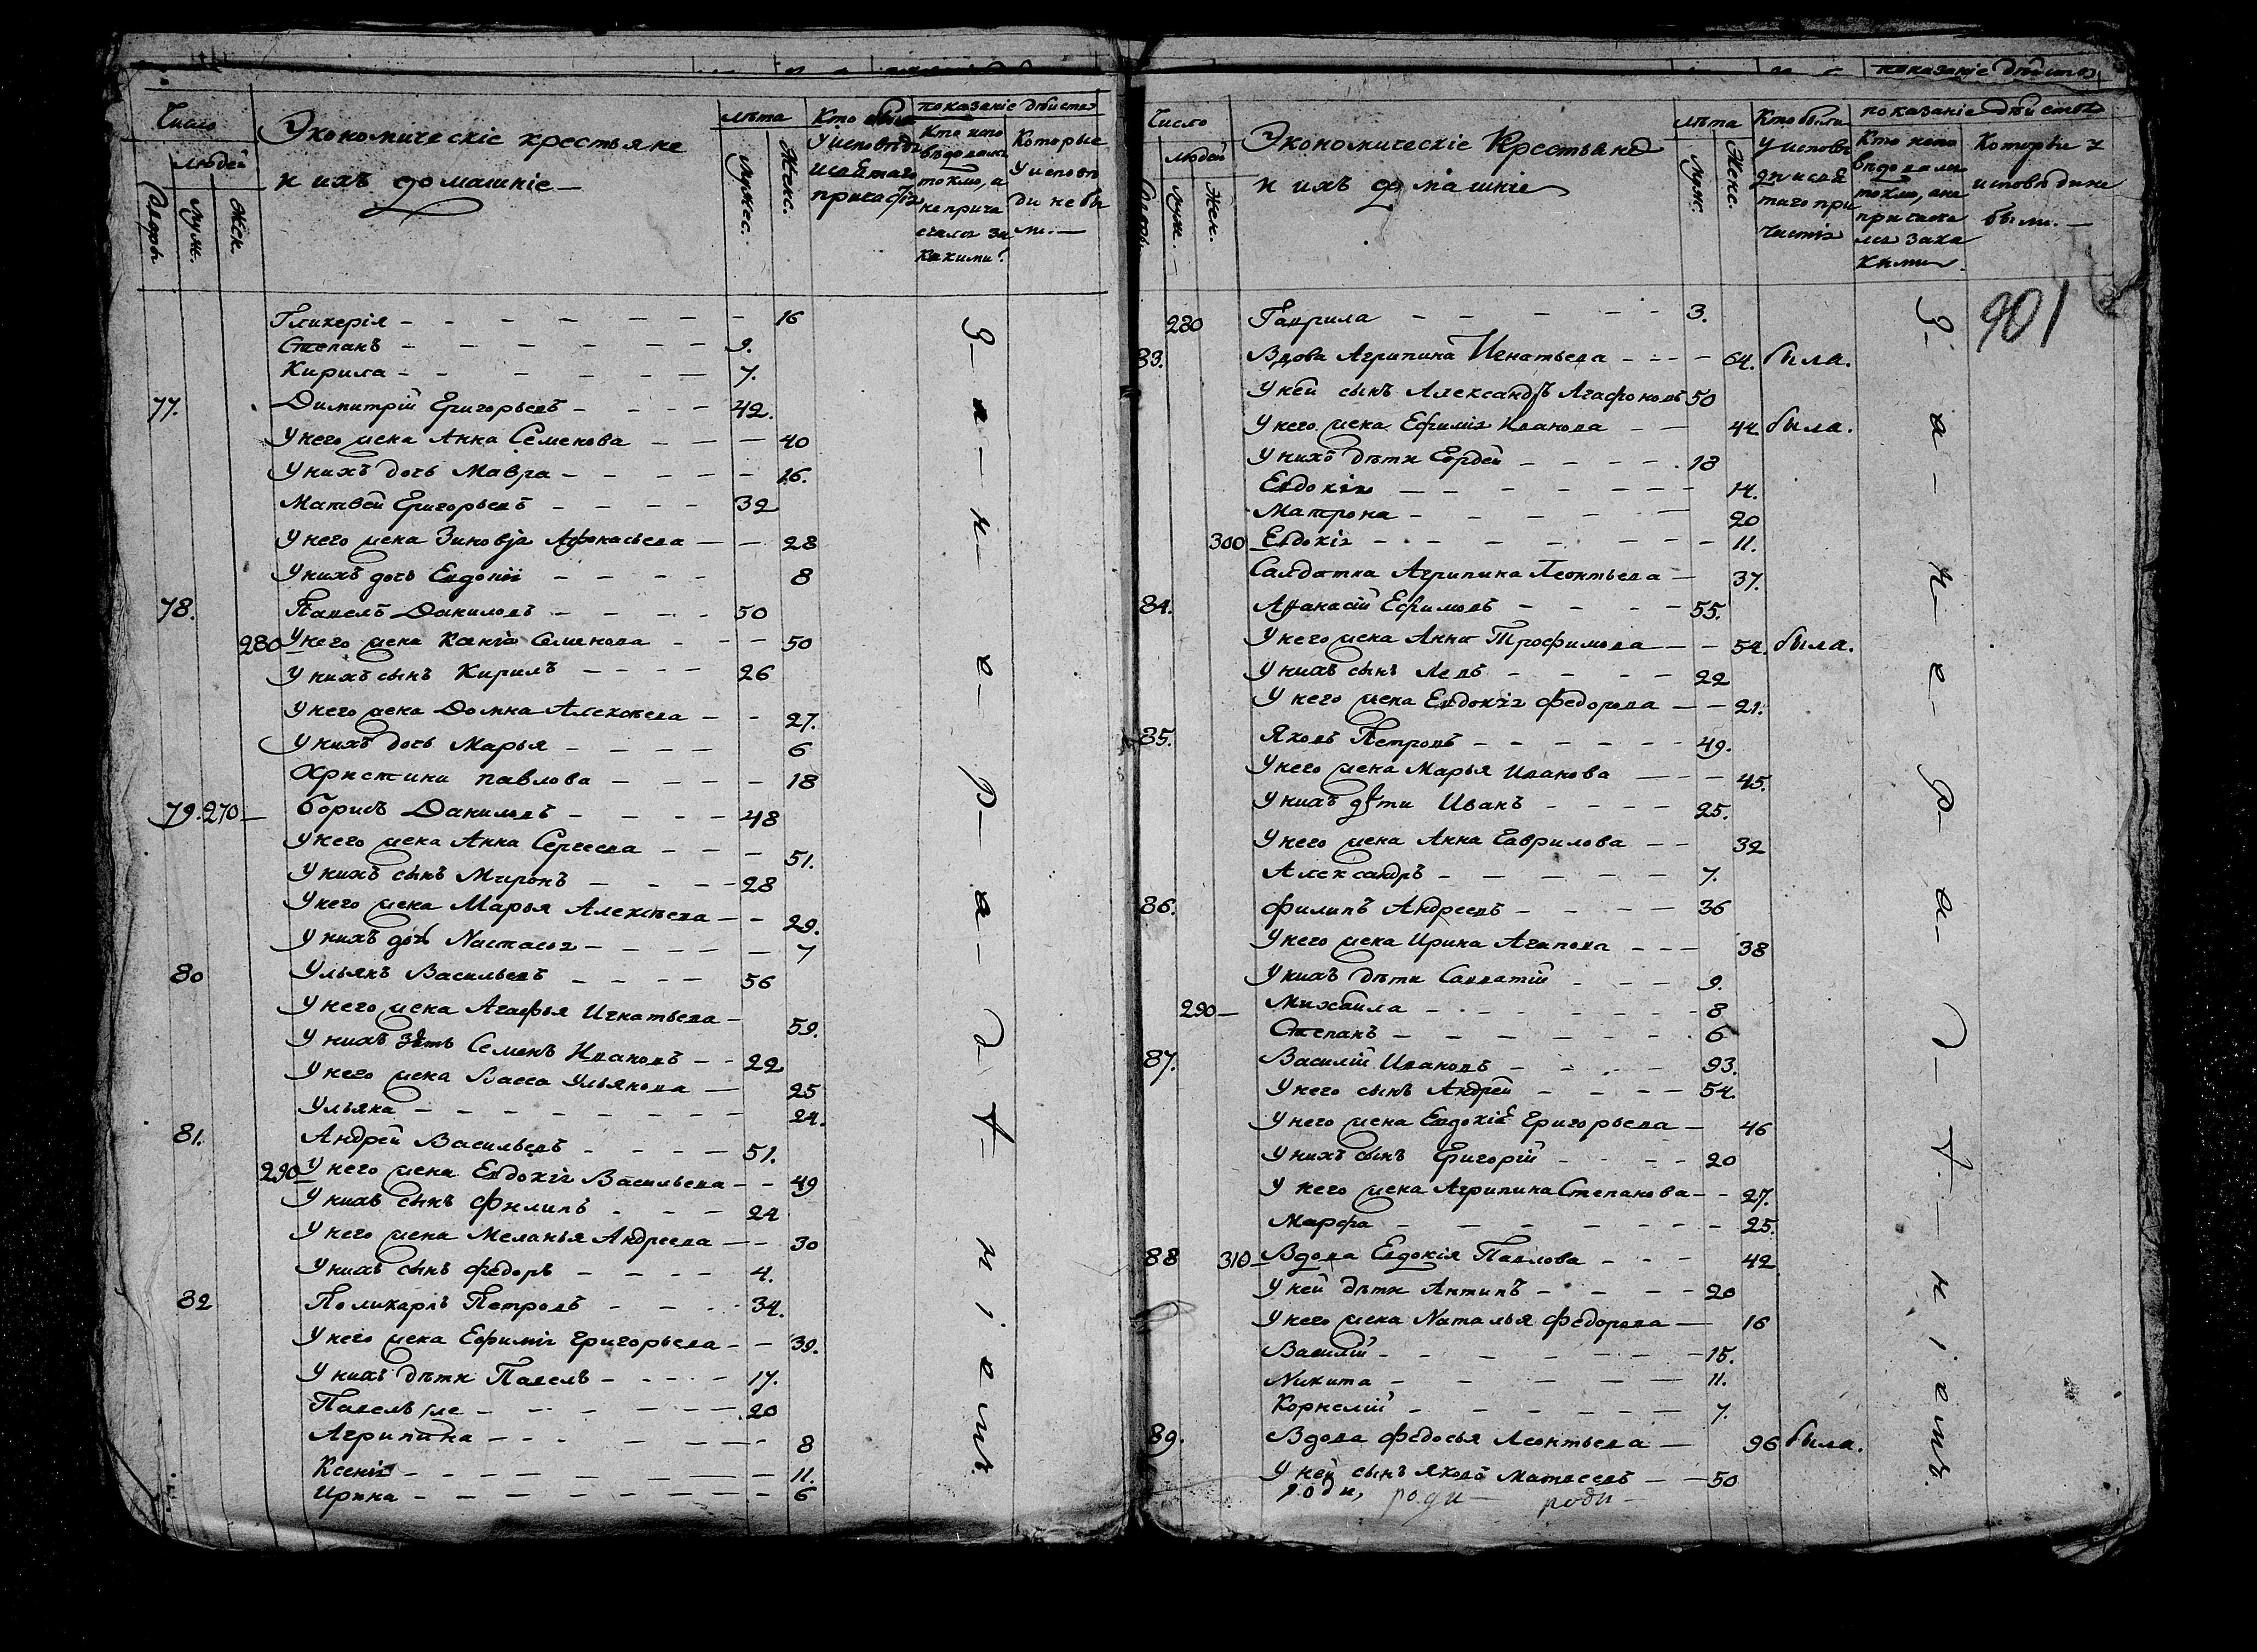 Число
людей
Дворы.
Муж.
Жен.
Экономическіе крестьяне
и ихъ домашніе —
лѣта
Мужес.
Женс.
Кто были
У исповѣди
и святаго
причастія
показаніе дѣйства
Кто испо
вѣдовалис
токмо, а
не прича
стилис за
какими?
Которые
У исповѣ
ди не бы
ли. —
Гликерія — 16
Степанъ — 9.
Кирила — 7.
77. Димитрій Григорьевъ — 42.
У него жена Анна Семенова — 40
У нихъ дочь Мавра — 16.
Матвей Григорьевъ — 32
У него жена Зиновія Афонасьева — 28
У нихъ дочь Евдокіи — 8
78. Павелъ Даниловъ — 50
280 У него жена Ксенія Семенова — 50
У нихъ сынъ Кирилъ — 26
У него жена Домна Алексѣева — 27.
У нихъ дочь Марья — 6
Христина павлова — 18
79. 270 — Борисъ Даниловъ — 48
У него жена Анна Сергеева — 51.
У нихъ сынъ Миронъ — 28
У него жена Марья Алексѣева — 29.
У нихъ дочь Настасья — 7
80 Ульянъ Васильевъ — 56
У него жена Агафья Игнатьева — 59.
У нихъ зять Семенъ Ивановъ — 22
У него жена Васса Ульянова — 25
Ульяна — 24.
81. Андрей Васильевъ — 51.
290 У него жена Евдокія Васильева — 49
У нихъ сынъ Филипъ — 24
У него жена Меланья Андреева — 30
У нихъ сынъ Федоръ — 4.
82 Поликарпъ Петровъ — 34.
У него жена Ефимія Григорьева — 39.
У нихъ дѣти Павелъ — 17.
Павелъ же — 20
Агрипина — 8
Ксенія — 11.
Ирина — 6
За нерадѣніемъ
Число
людей
Муж. —
Жен.
Экономическіе Крестьяне
и ихъ домашніе
лѣта
Муж.
Женс.
Кто были
У исповѣ
ди и свя
таго при
частія
показаніе дѣйства
Кто испо
вѣдовалис
токмо, а не
причаса
лис за ка
кими
Которые у
исповѣди не
были. —
901
280 Гаврила — 3.
83. Вдова Агрипина Игнатьева — 64. была.
У ней сынъ Александръ Агафоновъ 50
У него жена Ефимія Иванова — 44 была.
У нихъ дѣти Гордей — 18
Евдокія — 14.
Матрона — 20
300 Евдокія — 11.
Салдатка Агрипина Леонтьева — 37.
84. Афанасій Ефимовъ — 55.
У него жена Анна Трофимова — 54. была.
У нихъ сынъ Левъ — 22
У него жена Евдокія Федорова — 21.
85. Яковъ Петровъ — 49.
У него жена Марья Иванова — 45.
У нихъ дѣти Иванъ — 25.
У него жена Анна Гаврилова — 32
Александръ — 7.
86. Филипъ Андреевъ — 36
У него жена Ирина Агапова — 38
У нихъ дѣти Савватій — 9.
290 — Михайла — 8
Степанъ — 6
87. Василій Ивановъ — 93.
У него сынъ Андрей — 54.
У него жена Евдокія Григорьева — 46
У нихъ сынъ Григорій — 20
У него жена Агрипина Степанова — 27.
Марфа — 25.
88 310 — Вдова Евдокія Павлова — 42
У ней дѣти Антипъ — 20
У него жена Наталья Федорова — 16
Василій — 15.
Никита — 11.
Корнелій — 7.
89. Вдова Федосья Леонтьева — 96 была.
У ней сынъ Яковъ Матвеевъ — 50
роди, роди — роди —
За нерадѣніемъ.